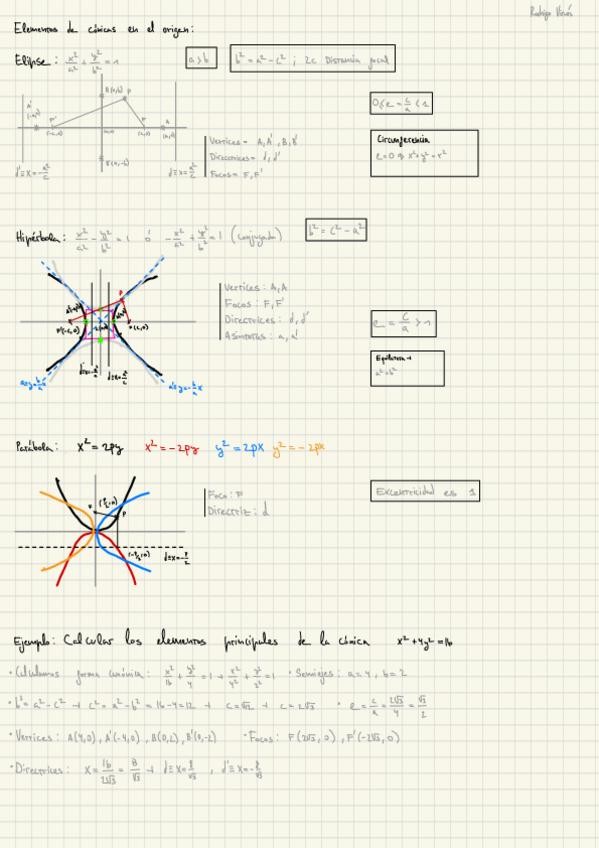 Rodrigo
Elementos de cónicas en el origen:
Elipse: x²/a² + y²/b² = 1
a>b
b² = a² - c² ; 2c Distancia focal
0≤e = c/a < 1
Circunferencia
e=0 → x²+y²=r²
Vértices = A, A', B, B'
Directrices = d, d'
Focos = F, F'
A'
(-a,0)
B(0,b)
P
F'
(-c,0)
(0,0)
F
(c,0)
A
B'(0,-b)
d'≡x=-a²/c
d≡x=a²/c
Hipérbola: x²/a² - y²/b² = 1 ó -x²/a² + y²/b² = 1 (conjugada)
b² = c² - a²
Vértices: A, A
Focos: F, F'
Directrices: d, d'
Asíntotas: a, a'
e = c/a > 1
a²=b²
F'(-c,0)
F(c,0)
P
Parábola: x² = 2py x² = -2py y² = 2px y² = -2px
Foco: F
Directriz: d
Excentricidad es 1
P
Ejemplo: Calcular los elementos principales de la cónica x²+4y²=16
· Calculamos forma canónica: x²/16 + y²/4 = 1 → x²/4² + y²/2² = 1 · Semiejes: a=4, b=2
· b² = a² - c² → c² = a² - b² = 16-4=12 → c=√12 → c=2√3 · e = c/a = 2√3/4 = √3/2
· Vértices: A(4,0), A'(-4,0), B(0,2), B'(0,-2) · Focos: F(2√3, 0), F'(-2√3, 0)
· Directrices: x = 16/2√3 = 8/√3 → d≡x=8/√3 , d'≡x=-8/√3